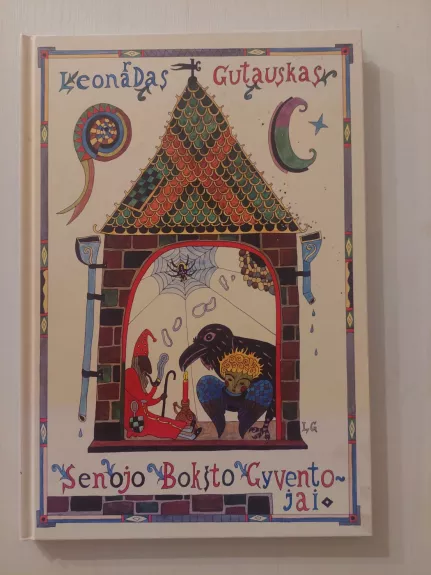 Leonardas Gutauskas
LG
Senojo Bokšto Gyvento-
jai